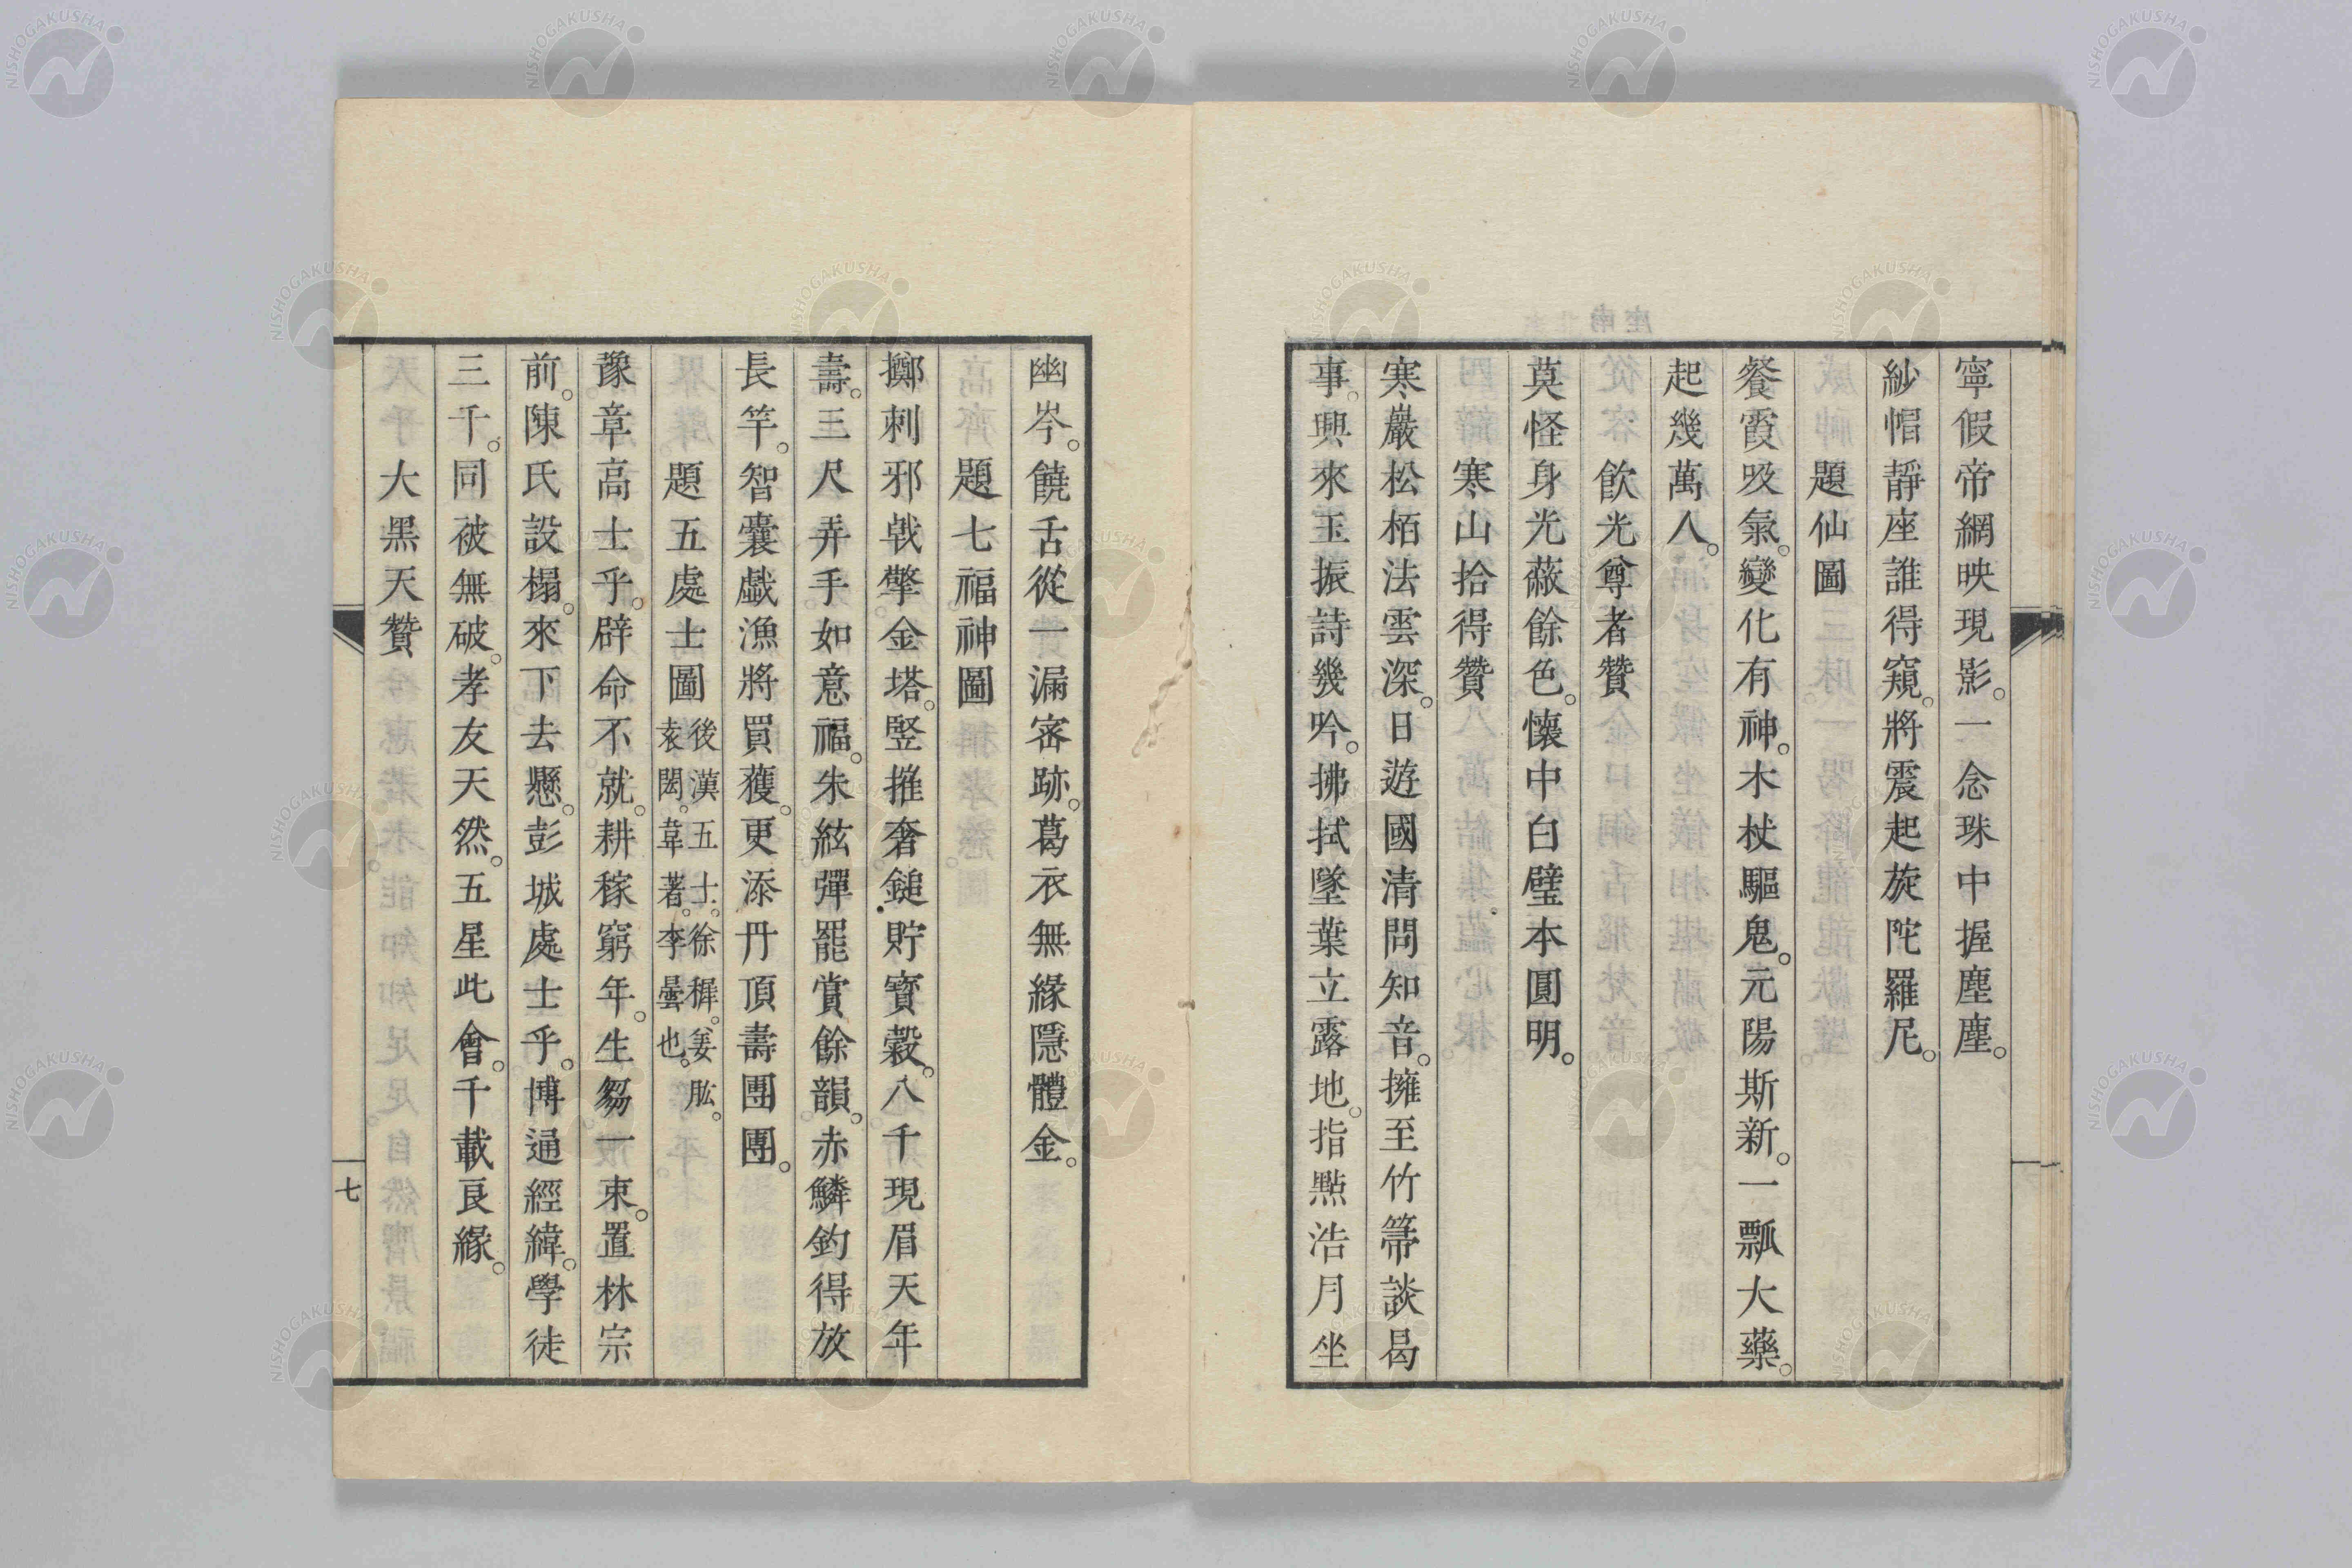 寧假帝網映現影。一念珠中握塵塵。
紗帽靜座誰得窺。將震起旋陀羅尼。
題仙圖
餐霞吸氣。變化有神。木杖驅鬼。元陽斯新。一瓢大藥。
起幾萬人。
飲光尊者贊
莫怪身光蔽餘色。懷中白璧本圓明。
寒山拾得贊
寒巖松栢法雲深。日遊國清問知音。擁至竹箒談曷
事。興來玉振詩幾吟。拂拭墜葉立露地。指點浩月坐
幽岑。饒舌從一漏密跡。葛衣無緣隱體金。
題七福神圖
擲刺邪戟擎金塔。竪推奢鎚貯寶穀。八千現眉天年
壽。三尺弄手如意福。朱絃彈罷賞餘韻。赤鱗釣得放
長竿。智囊戲漁將買獲。更添丹頂壽團團。
題五處士圖 後漢五士。徐穉。姜肱。
袁閎。韋著。李曇也。
豫章高士乎。辟命不就。耕稼窮年。生芻一束。置林宗
前。陳氏設榻。來下去懸。彭城處士乎。博通經緯。學徒
三千。同被無破。孝友天然。五星此會。千載良緣。
大黑天贊
七
NISHOGAKUSHA